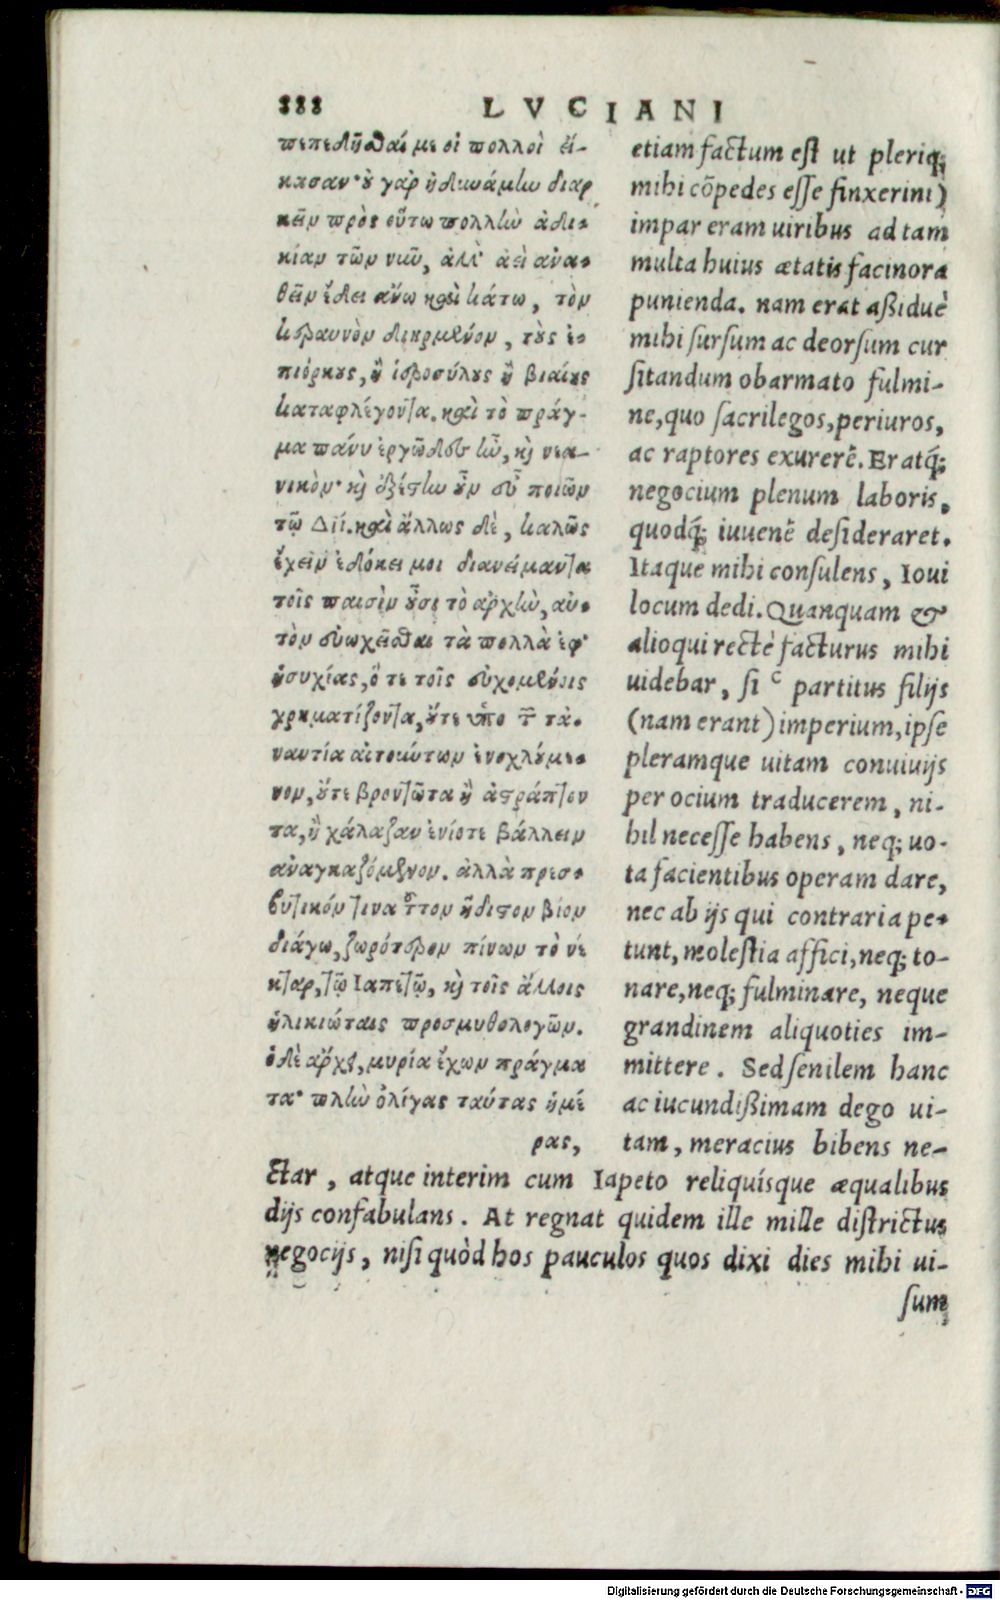 888 LVCIANI
πεπεδῆσθαί με οἱ πολλοὶ εἴ-
κασαν· οὐ γὰρ ἠδυνάμην διαρ
κεῖν πρὸς οὕτω πολλὴν ἀδι-
κίαν τῶν νῦν, ἀλλ' ἀεὶ ἀνα-
θεῖν ἔδει ἄνω καὶ κάτω, τὸν
κεραυνὸν διηρμένον, τοὺς ἐ-
πιόρκους, ἢ ἱεροσύλους ἢ βιαίους
καταφλέγοντα. καὶ τὸ πρᾶγ-
μα πάνυ ἐργῶδες ἦν, καὶ νεα-
νικὸν· καὶ ἐξέστην εὖ ποιῶν
τῷ Διΐ. καὶ ἄλλως δὲ, καλῶς
ἔχειν ἐδόκει μοι διανείμαντα
τοῖς παισὶν οὖσι τὸ ἀρχὴν, αὐ-
τὸν εὐωχεῖσθαι τὰ πολλὰ ἐφ'
ἡσυχίας, ὅ τε τοῖς εὐχομένοις
χρηματίζοντα, οὔτε ὑπο τῶν τὰ-
ναντία αἰτούντων ἐνοχλούμε-
νον, οὔτε βροντῶτα ἢ ἀστράπτον
τα, ἢ χάλαζαν ἐνίοτε βάλλειν
ἀναγκαζόμενον. ἀλλὰ πρεσ-
βυτικόν τινα τοῦτον ἥδιστον βίον
διάγω, ζωρότερον πίνων τὸ νέ
κταρ, τῷ Ιαπετῷ, καὶ τοῖς ἄλλοις
ἡλικιώταις προσμυθολογῶν.
ὁ δὲ ἄρχει, μυρία ἔχων πράγμα
τα· πλὴν ὀλίγας ταύτας ἡμέ
ρας,
etiam factum est ut pleriq;
mihi cōpedes esse finxerint)
impar eram uiribus ad tam
multa huius ætatis facinora
punienda. nam erat aßiduè
mihi sursum ac deorsum cur
sitandum obarmato fulmi-
ne, quo sacrilegos, periuros,
ac raptores exurerē. Eratq́;
negocium plenum laboris,
quodq́; iuuenē desideraret.
Itaque mihi consulens, Ioui
locum dedi. Quanquam &
alioqui rectè facturus mihi
uidebar, si c partitus filijs
(nam erant) imperium, ipse
pleramque uitam conuiuijs
per ocium traducerem, ni-
hil necesse habens, neq; uo-
ta facientibus operam dare,
nec ab ijs qui contraria pe-
tunt, molestia affici, neq; to-
nare, neq; fulminare, neque
grandinem aliquoties im-
mittere. Sed senilem hanc
ac iucundißimam dego ui-
tam, meracius bibens ne-
ctar, atque interim cum Iapeto reliquísque æqualibus
dijs confabulans. At regnat quidem ille mille districtus
negocijs, nisi quòd hos pauculos quos dixi dies mihi ui-
sum
Digitalisierung gefördert durch die Deutsche Forschungsgemeinschaft - DFG